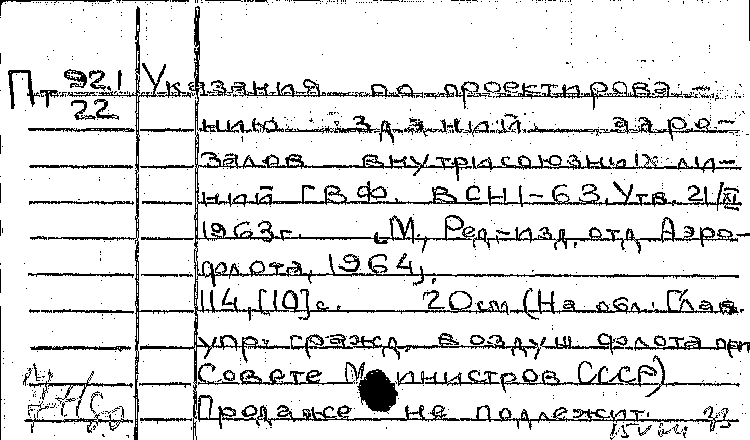 Пт 921/22 Указания по проектирова-
нию зданий аэро-
залов внутрисоюзных ли-
ний ГВФ. ВСН 1-63. Утв. 21/XI
1963г. М., Ред.-изд. отд. Аэро-
флота, 1964.
114,[10]с. 20см (На обл.: Глав.
упр. гражд. воздуш. флота при
Совете Министров СССР)
Продаже не подлежит.